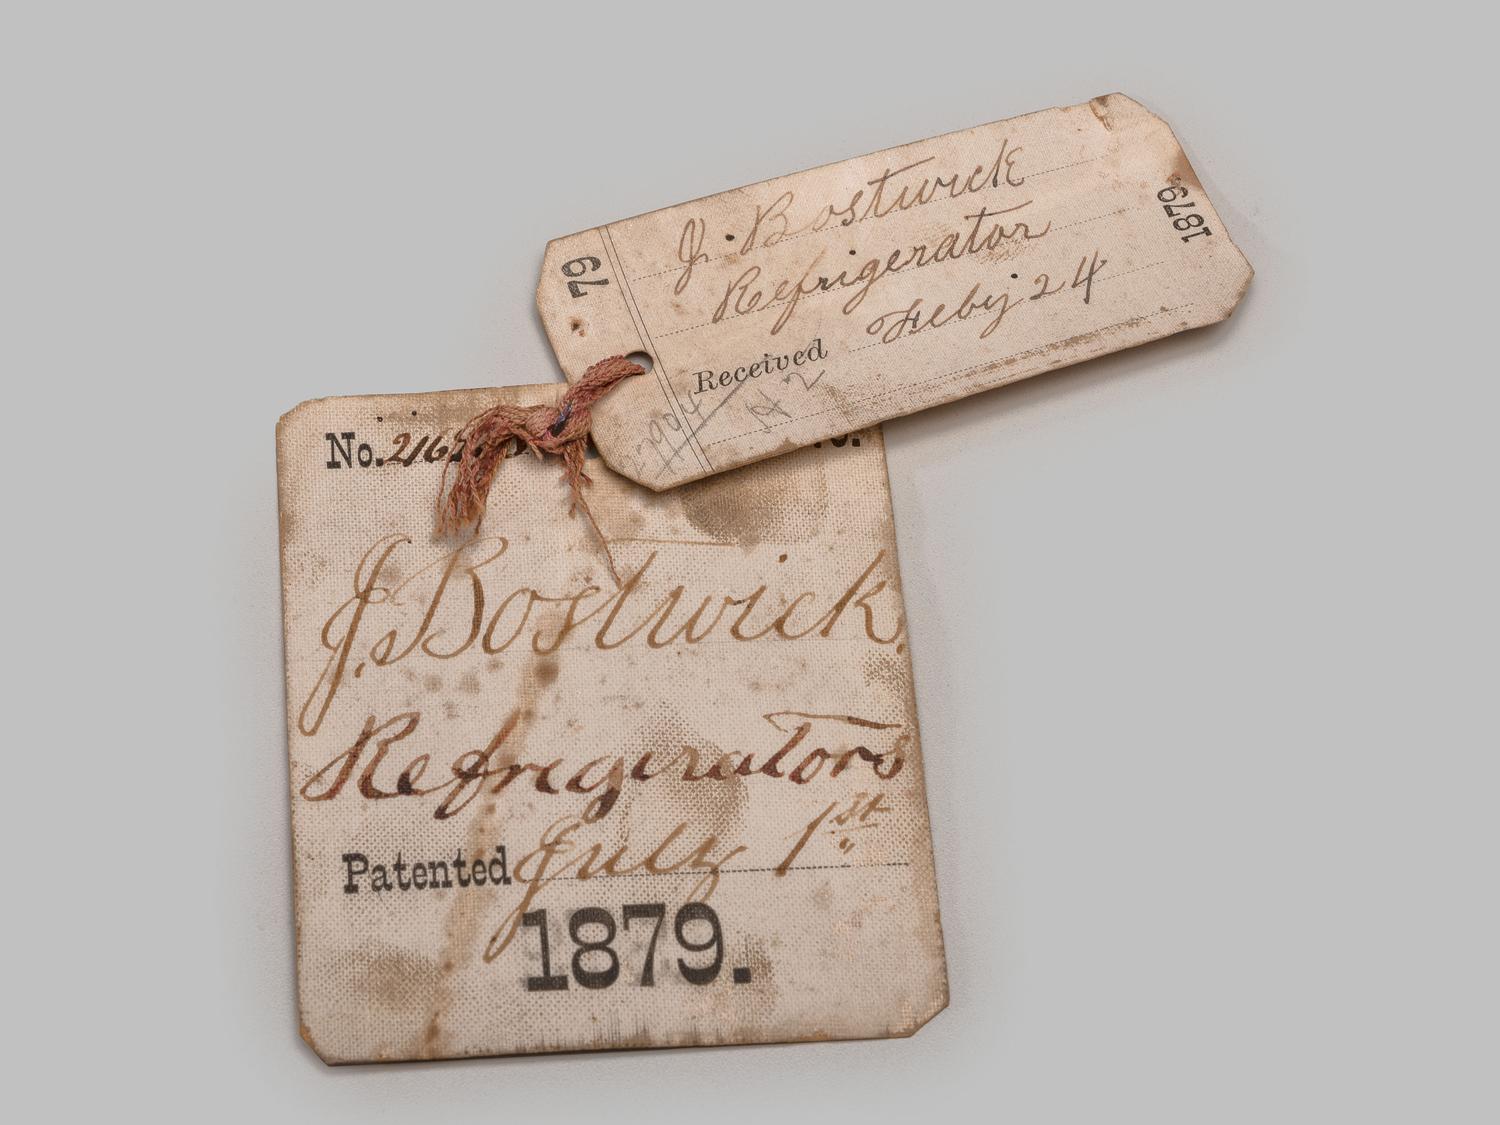 79
J. Bostwick
Refrigerator
Received Feby 24
1879
No.
J. Bostwick.
Refrigerators
Patented July 1st
1879.